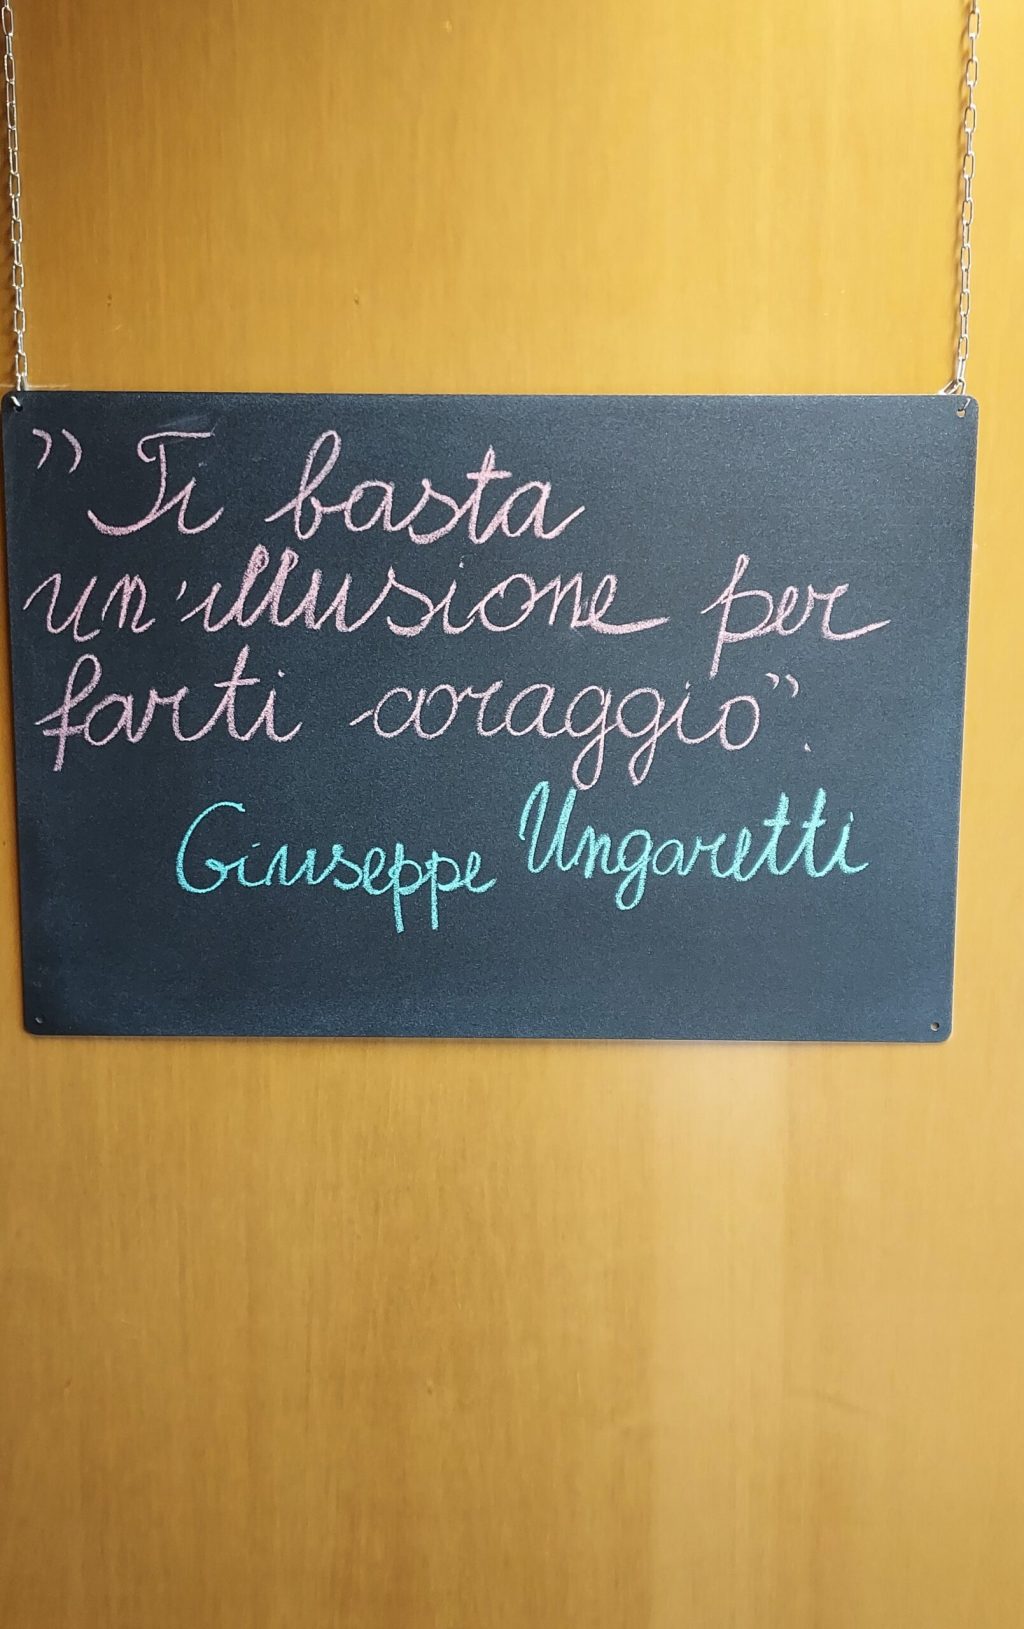 ” Ti basta
un'illusione per
farti coraggio”.
Giuseppe Ungaretti